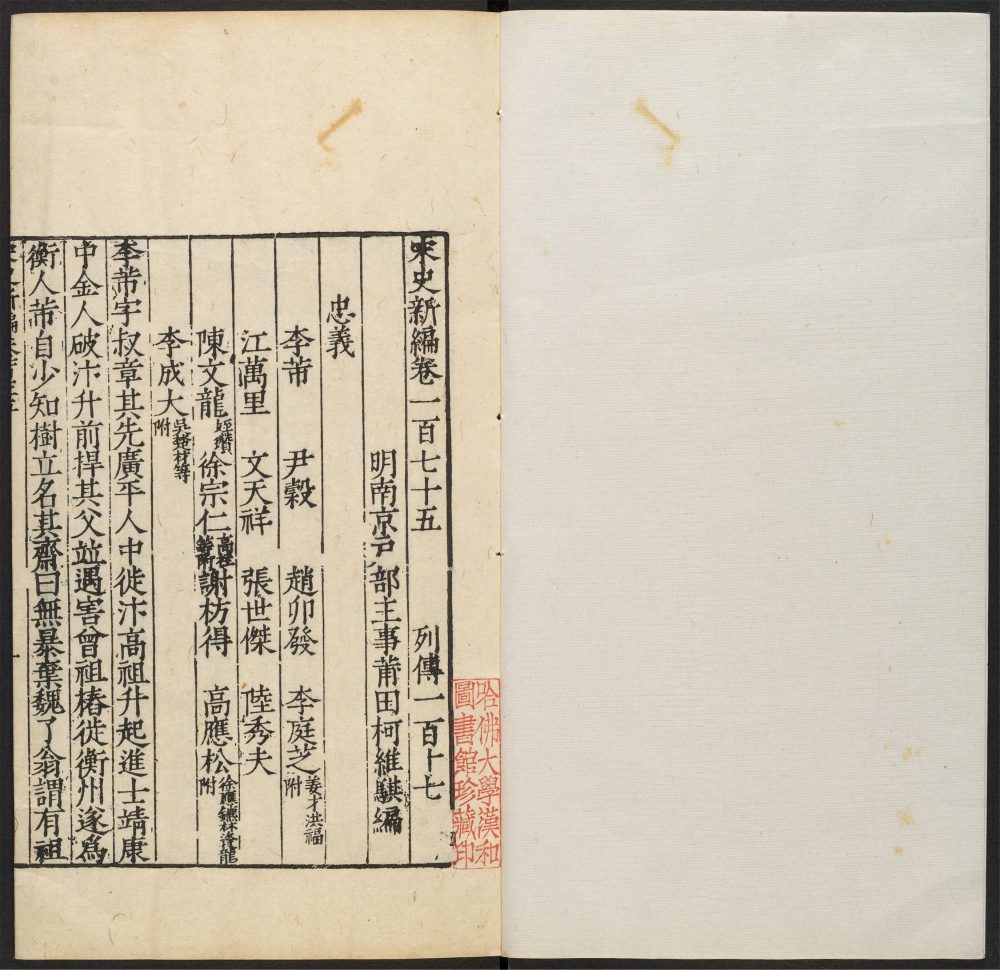 宋史新編卷一百七十五 列傳一百十七
明南京戸部主事莆田柯維騏編
忠義
李芾 尹穀 趙卯發 李庭芝 姜才洪福附
江萬里 文天祥 張世傑 陸秀夫
陳文龍 姪瓚 徐宗仁 高桂等附 謝枋得 高應松 徐應鑣林逢龍附
李成大 吳楚材等附
李芾字叔章其先廣平人中徙汴高祖升起進士靖康
中金人破汴升前捍其父竝遇害曾祖椿徙衡州遂爲
衡人芾自少知樹立名其齋曰無暴棄魏了翁謂有祖
哈佛大學漢和
圖書館珍藏印